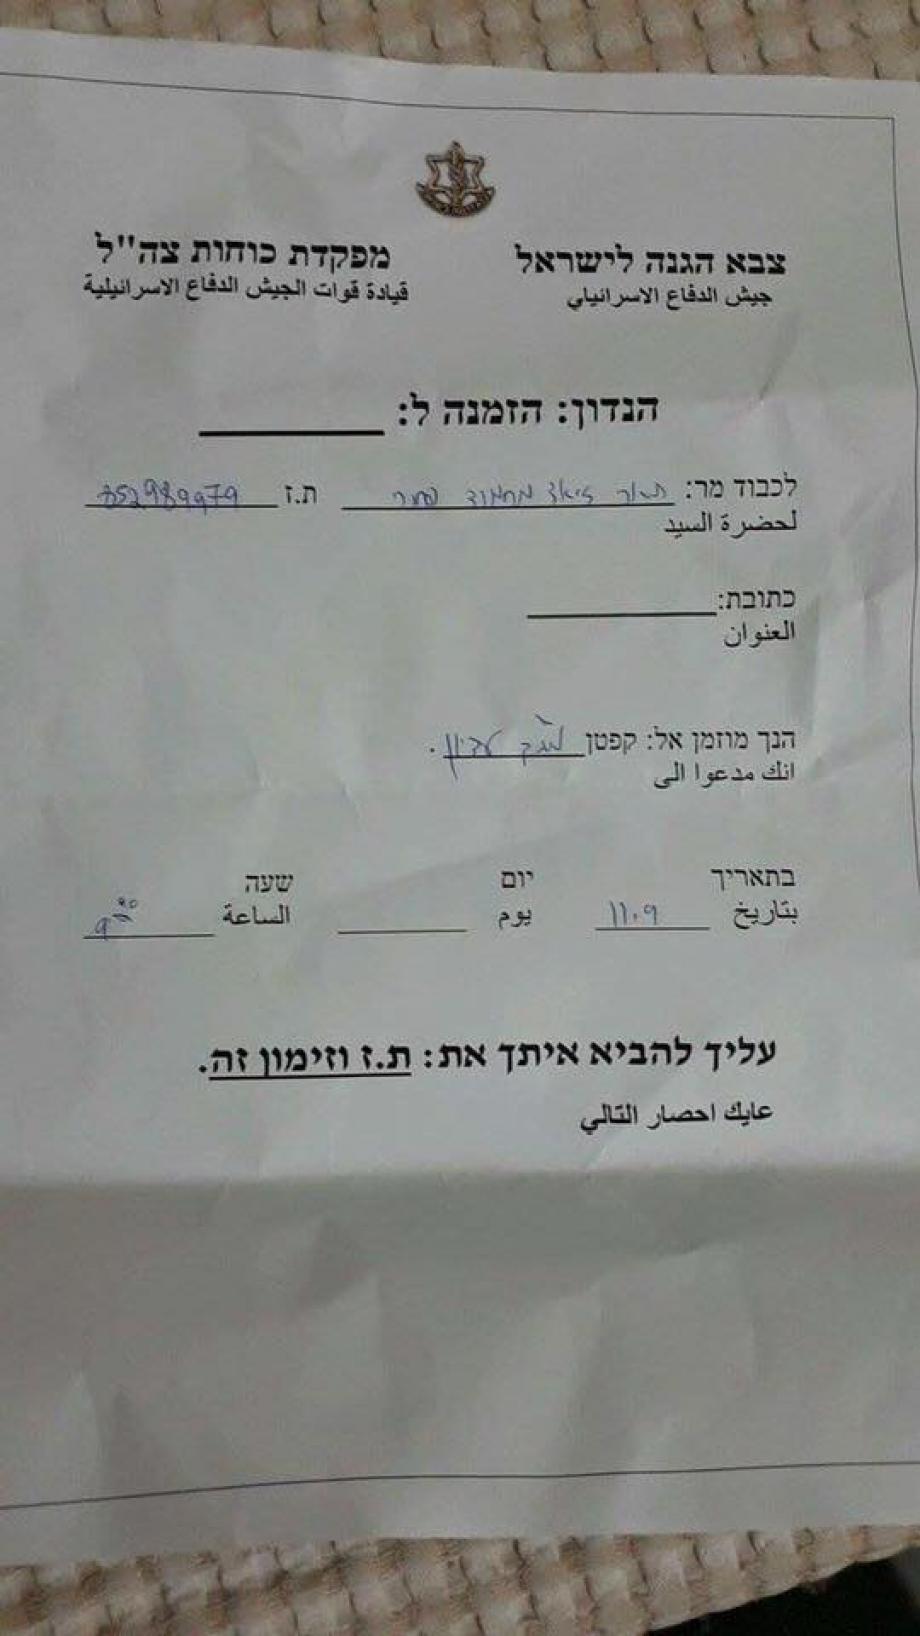 צבא הגנה לישראל
جيش الدفاع الاسرائيلي
מפקדת כוחות צה"ל
قيادة قوات الجيش الدفاع الاسرائيلية
הנדון: הזמנה ל:
לכבוד מר: תאר זיאד מחמוד ת.ז 852989979
لحضرة السيد
כתובת:
العنوان
הנך מוזמן אל: קפטן
انك مدعوا الى
בתאריך יום שעה
بتاريخ 11.9 يوم الساعة 9
עליך להביא איתך את: ת.ז וזימון זה.
عايك احصار التالي